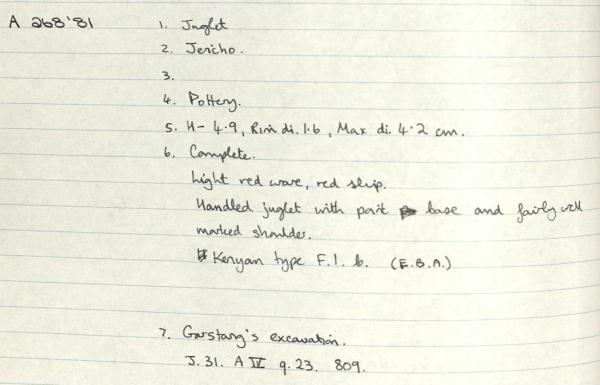 A 268'81
1. Juglet
2. Jericho.
3.
4. Pottery.
5. H- 4.9, Rim di. 1.6, Max di. 4.2 cm.
6. Complete.
Light red ware, red slip.
Handled juglet with point base and fairly well
marked shoulder.
Kenyan type F.1. b. (E.B.A.)
7. Garstang's excavation.
J. 31. A IV q. 23. 809.